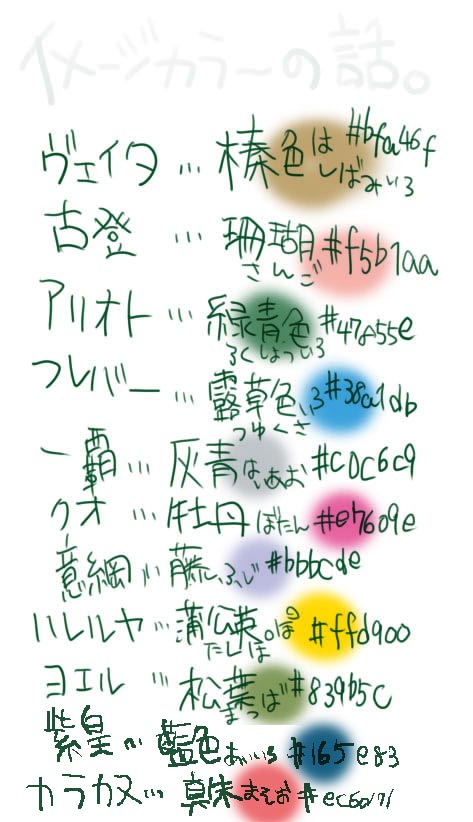 イメージカラーの話。
ヴェイタ … 榛色は #bfa46f
しばみいろ
古登 … 珊瑚 #f5b1aa
さんご
アリオト … 緑青色 #47855e
ろくしょういろ
フレバー … 露草色 いろ #38a1db
つゆくさ
一覇 … 灰青 はいあお #c0c6c9
クオ … 牡丹 ぼたん #e7609e
意綱 … 藤 ふじ #bbbcde
ハレルヤ … 蒲公英 。ぽ #ffd900
たんぽ
ヨエル … 松葉ば #839b5c
まつ
紫皇 … 藍色 あいいろ #165e83
カラカヌ … 真朱 まそお #ec6d71